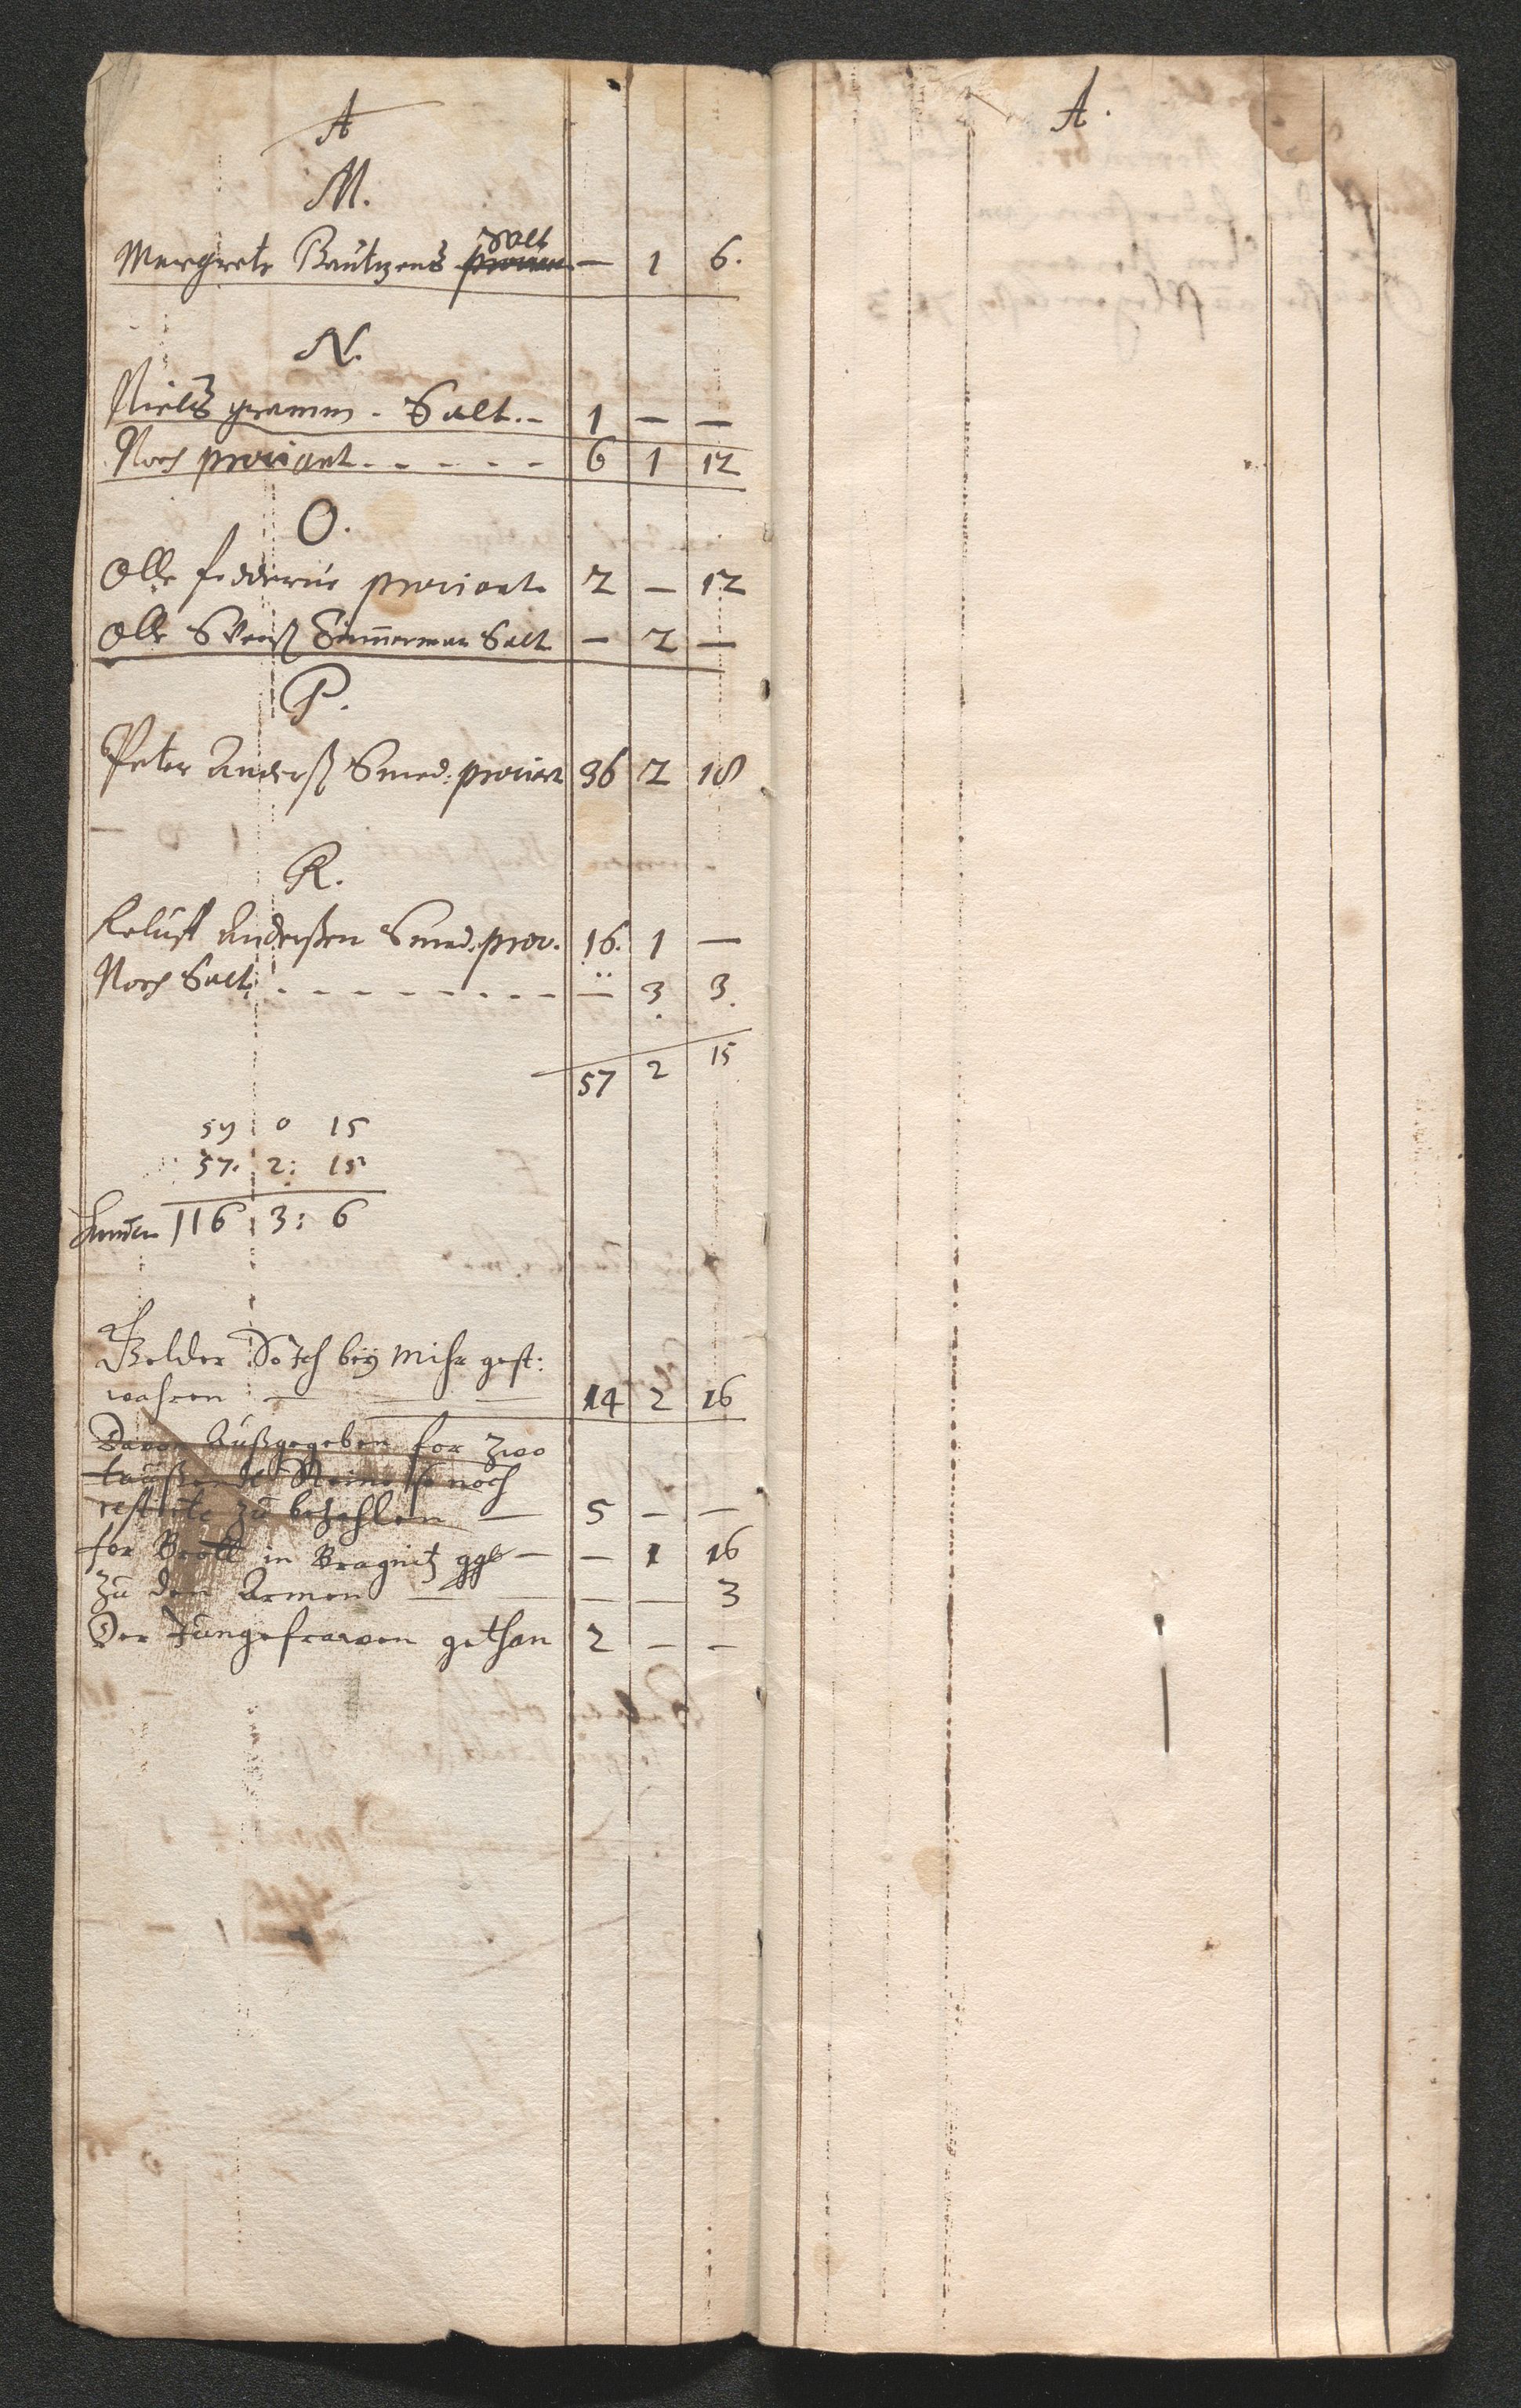 A
M.
Salt
Margrete Bautzens proviant — 1 6.
N.
Niels gramm - Salt.- 1 — —
Noch proviant - - - - - 6 1 12
O.
Olle fedderus proviant 2 — 12
Olle Svenß Simmerman Salt — 2 —
P.
Peter Anderß Smed: proviant 36 2 18
R.
Anderßen Smed. prov. 16. 1 —
Noch Salt - - - - - - - - — 3 3.
57 2 15
59 0 15
57. 2: 15
Summa 116 3: 6
Gelder So Ich beÿ mihr gest:
wahren — 14 2 16
Davon Außgegeben for zwo
taußendt Steine so noch
restirte zu bezahlen — 5 — —
for Brott in Bragnitz ggb — — 1 16
zu den Armen — — — 3
Der Jungefrawen gethan 2 — —
A.